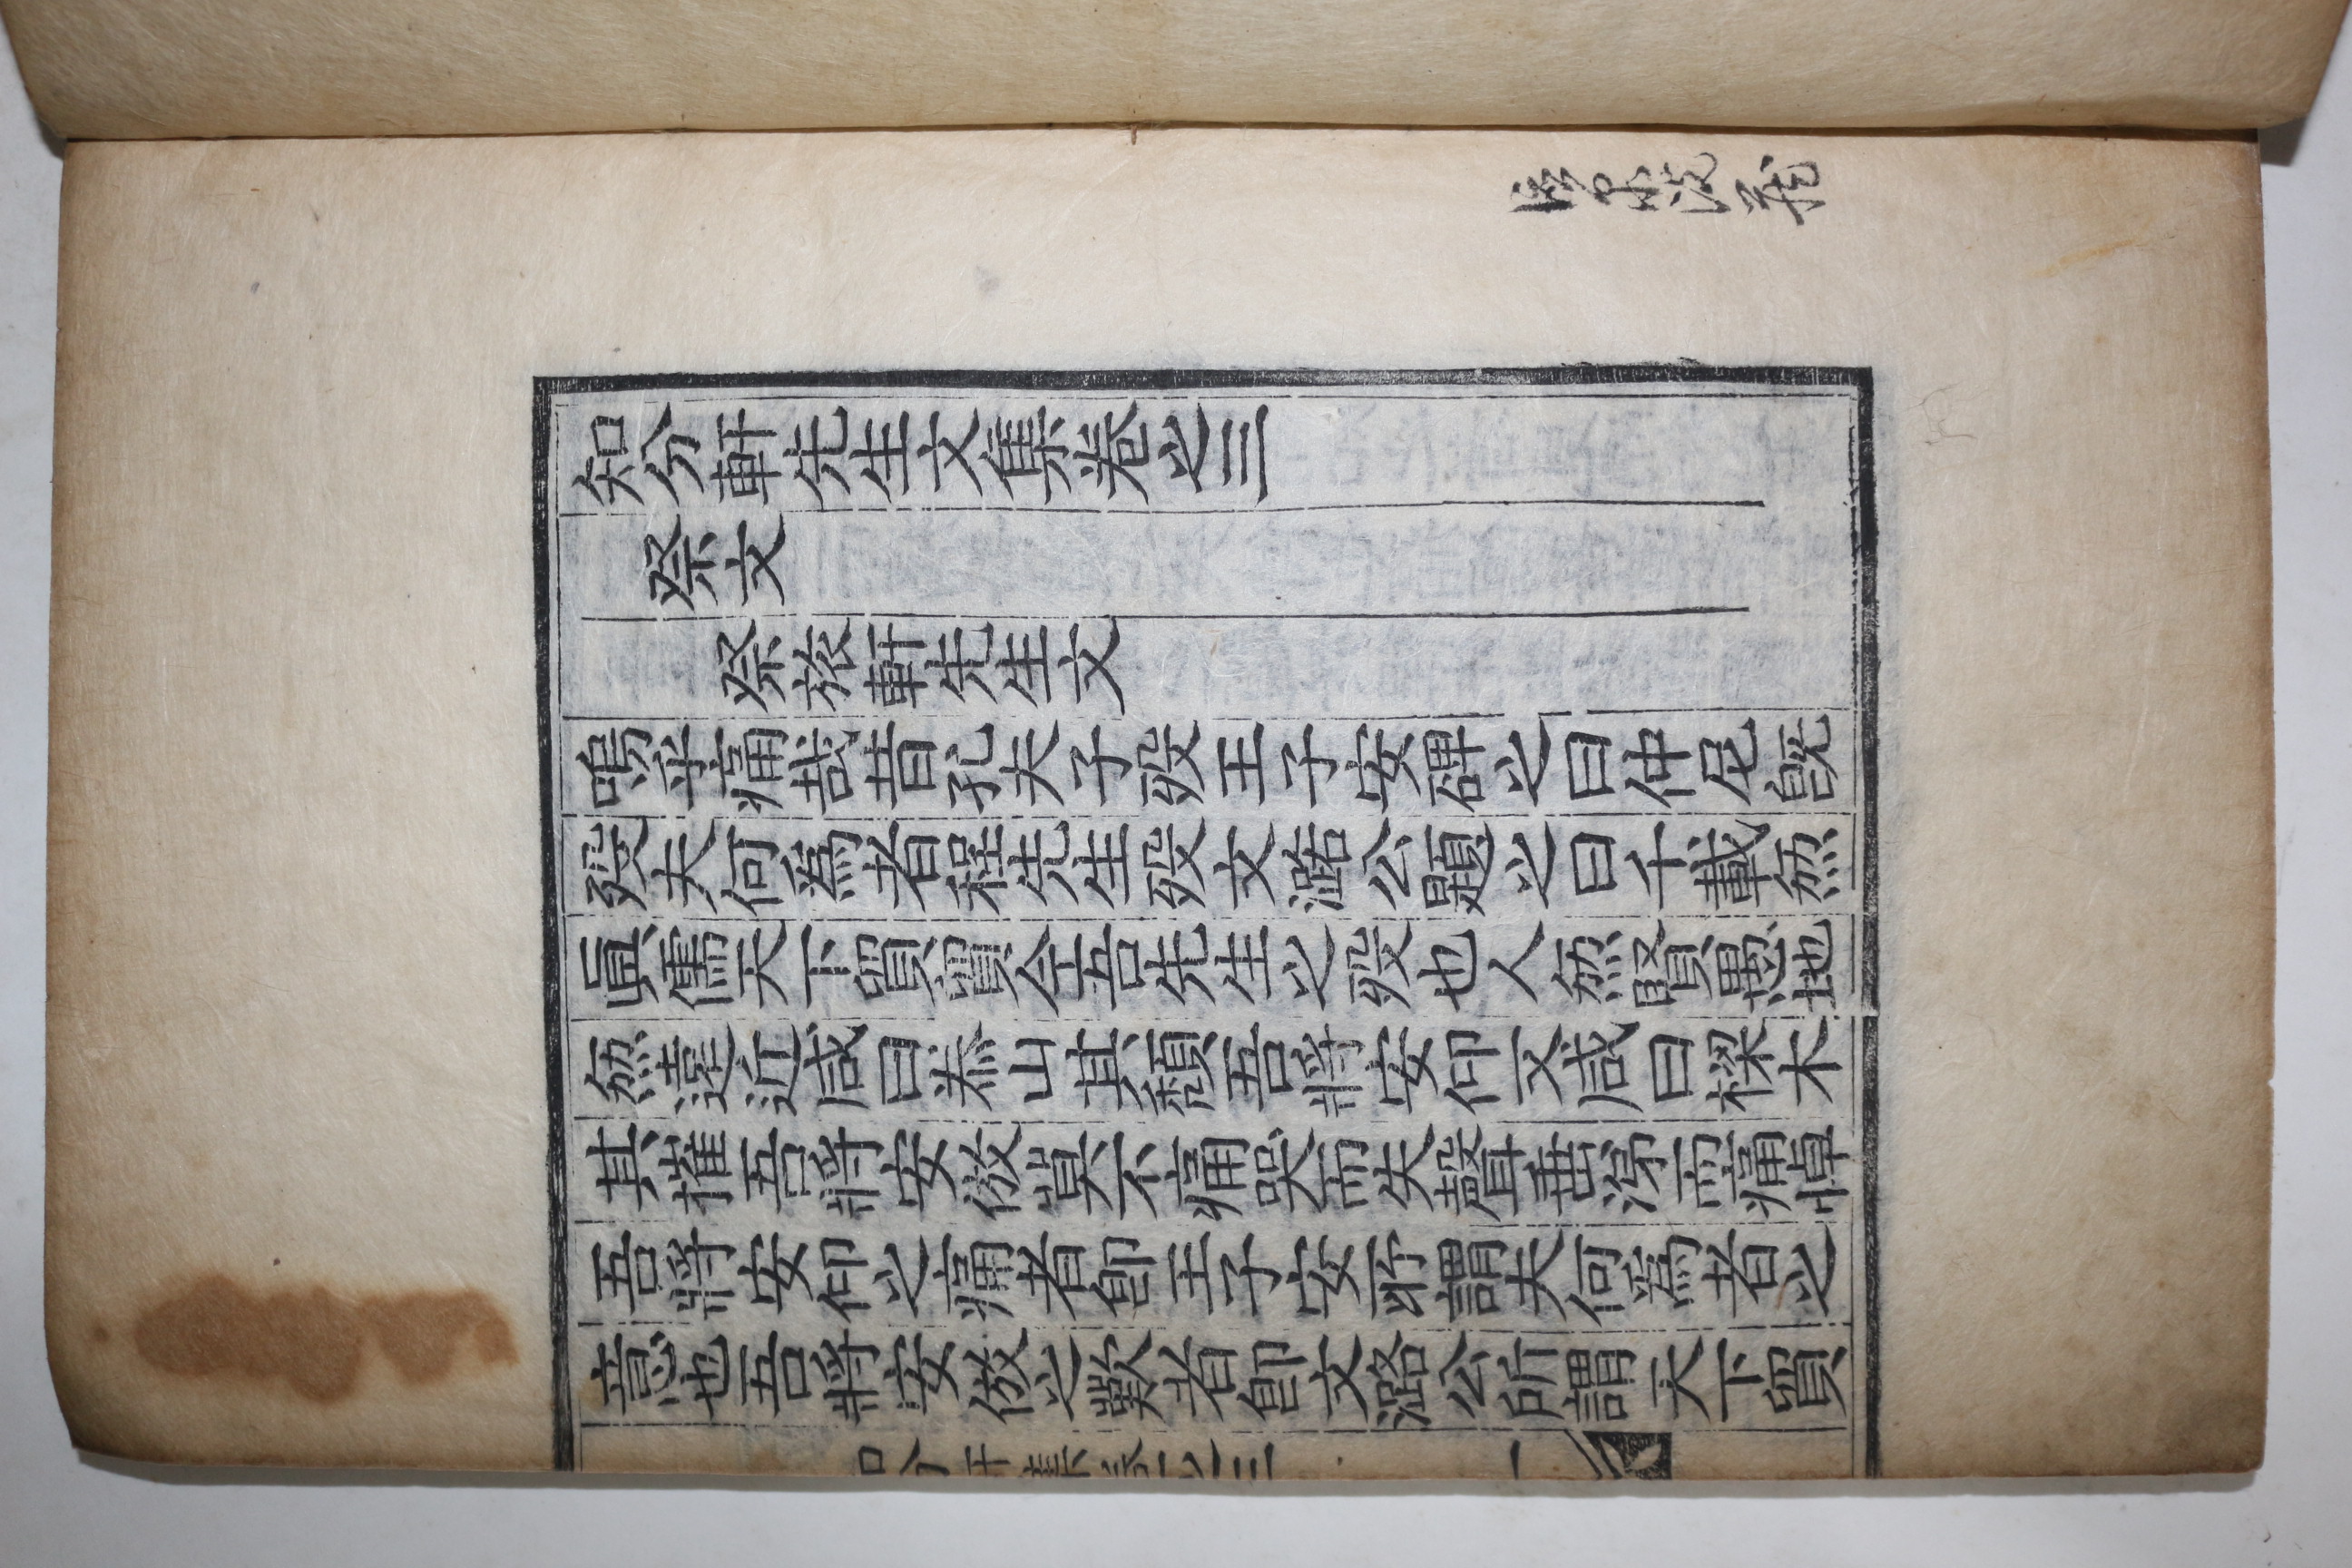 知分軒先生文集卷之三
祭文
祭旅軒先生文
嗚乎痛哉昔孔夫子歿王子安碑之曰仲尼旣
歿夫何爲者程先生歿文潞公題之曰千載然
眞儒天下貿貿今吾先生之歿也人然賢愚地
然遠近咸曰泰山其頹吾將安仰又咸曰樑木
其摧吾將安倣莫不痛哭而失聲垂涕而痛悼
吾將安仰之痛者卽王子安所謂夫何爲者之
意也吾將安倣之歎者卽文潞公所謂天下貿
知分軒集卷之三
一
泉院藏